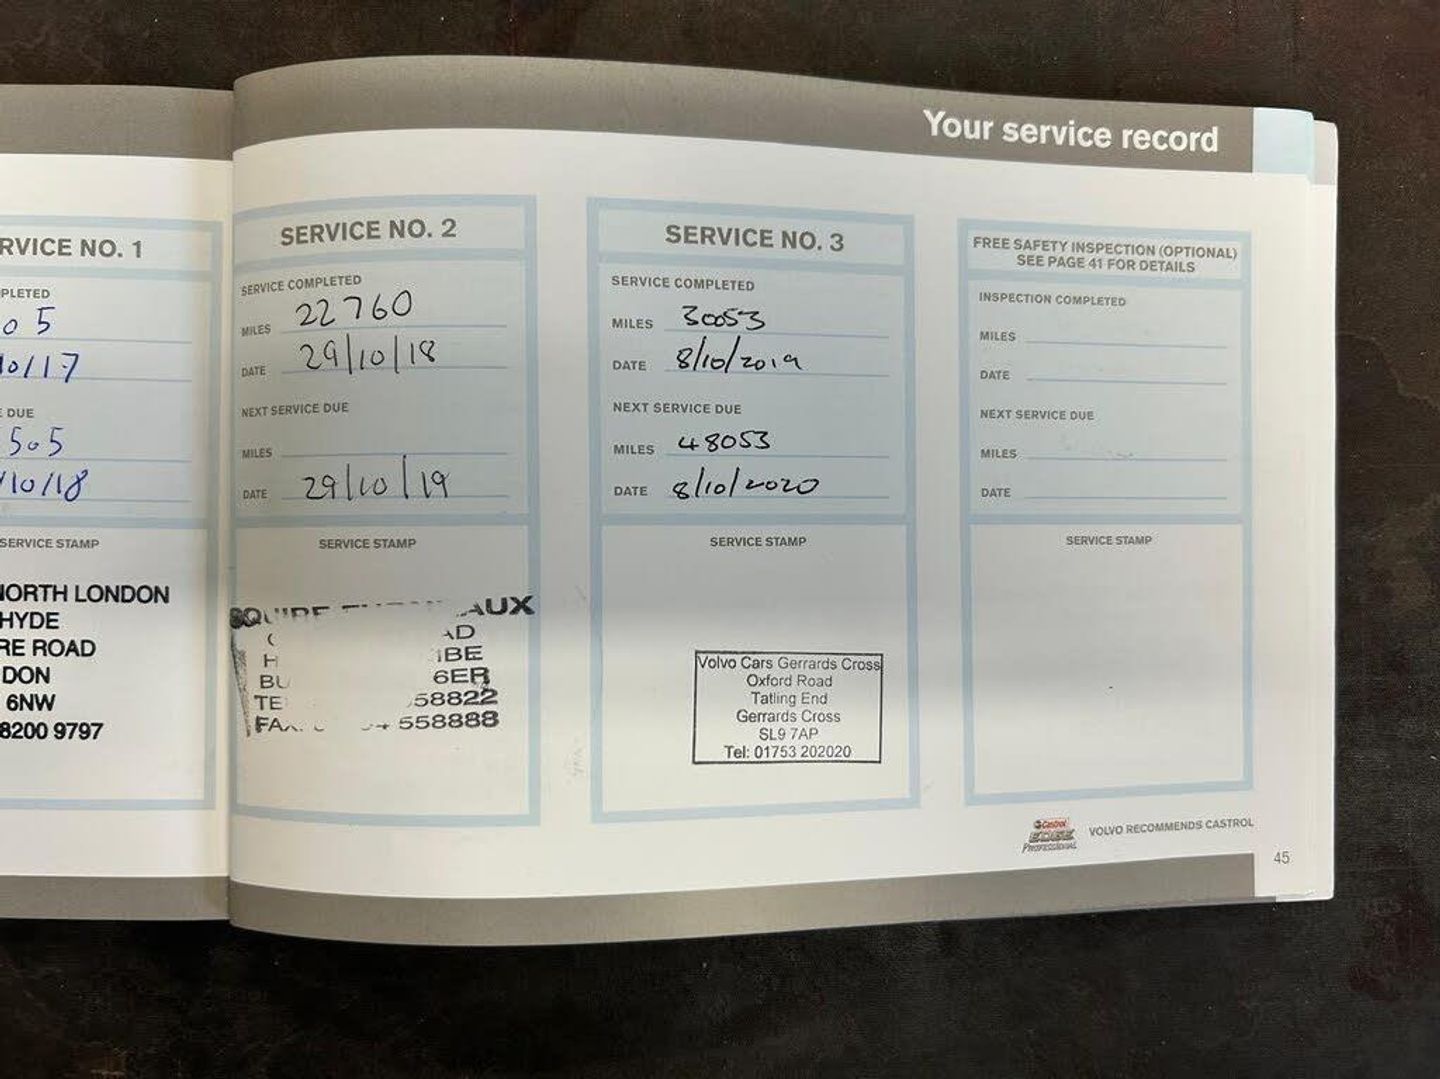 Your service record
RVICE NO. 1
PLETED
05
10/17
E DUE
505
/10/18
SERVICE STAMP
NORTH LONDON
HYDE
RE ROAD
DON
6NW
8200 9797
SERVICE NO. 2
SERVICE COMPLETED
MILES 22760
DATE 29/10/18
NEXT SERVICE DUE
MILES
DATE 29/10/19
SERVICE STAMP
AUX
AD
H IBE
BU 6ER
TE 58822
FAX 558888
SERVICE NO. 3
SERVICE COMPLETED
MILES 30053
DATE 8/10/2019
NEXT SERVICE DUE
MILES 48053
DATE 8/10/2020
SERVICE STAMP
Volvo Cars Gerrards Cross
Oxford Road
Tatling End
Gerrards Cross
SL9 7AP
Tel: 01753 202020
FREE SAFETY INSPECTION (OPTIONAL)
SEE PAGE 41 FOR DETAILS
INSPECTION COMPLETED
MILES
DATE
NEXT SERVICE DUE
MILES
DATE
SERVICE STAMP
Castrol
EDGE
PROFESSIONAL
VOLVO RECOMMENDS CASTROL
45